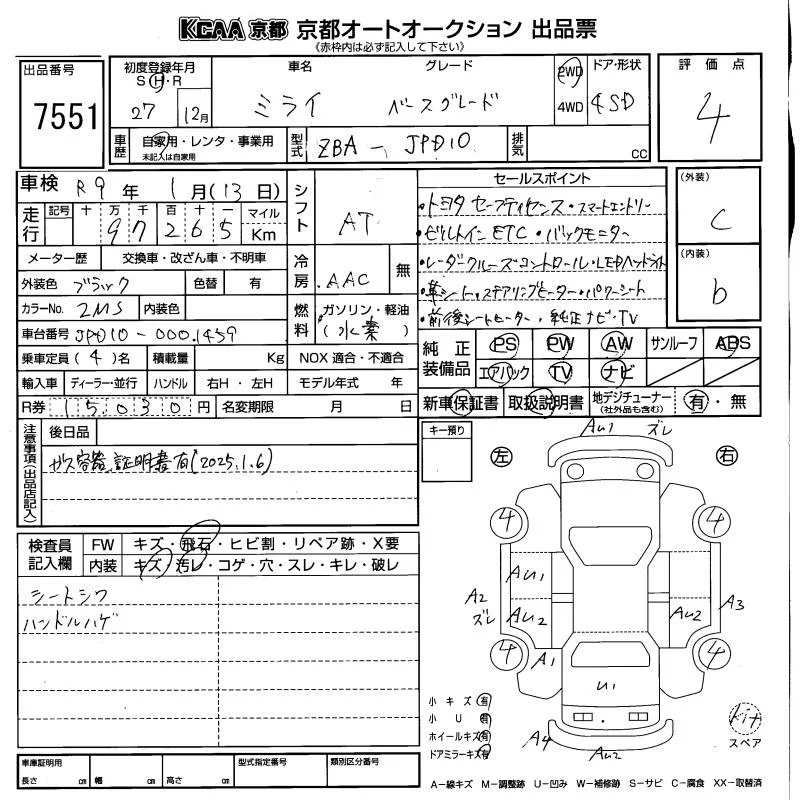 KCAA 京都 京都オートオークション 出品票
《赤枠内は必ず記入して下さい》
出品番号
7551
初度登録年月
S・H・R
27 12月
車名
ミライ
グレード
ベースグレード
2WD
4WD
ドア・形状
4SD
評価点
4
車歴
自家用・レンタ・事業用
未記入は自家用
型式
ZBA-JPD10
排気
CC
車検 R9年 1月(13日)
走行
記号 十 万 千 百 十 一 マイル
97265 Km
シフト
AT
セールスポイント
・トヨタセーフティセンス・スマートエントリー
・ビルトインETC・バックモニター
・レーダークルーズコントロール・LEDヘッドライト
・革シート・ステアリングヒーター・パワーシート
・前後シートヒーター・純正ナビ・TV
(外装)
C
(内装)
b
メーター歴 交換車・改ざん車・不明車
外装色 ブラック 色替 有
冷房
AAC 無
カラーNo. 2MS 内装色
燃料
ガソリン・軽油
(水素)
車台番号 JPD10-0001459
乗車定員(4)名 積載量 Kg NOX 適合・不適合
輸入車 ディーラー・並行 ハンドル 右H・左H モデル年式 年
R券 15030円 名変期限 月 日
純正装備品
PS PW AW サンルーフ ABS
エアバック TV ナビ
新車保証書 取扱説明書 地デジチューナー(社外品も含む) 有・無
注意事項(出品店記入)
後日品
ガス容器証明書有(2025.1.6)
キー預り
検査員記入欄
FW キズ・飛石・ヒビ割・リペア跡・X要
内装 キズ・汚レ・コゲ・穴・スレ・キレ・破レ
シートシワ
ハンドルハゲ
左 右
AU1 ズレ
4 4
AU1
A2
ズレ
AU2 AU2
A3
4 4
A1
U1
A4
AU2
小キズ 有
小U 有
ホイールキズ 有
ドアミラーキズ 有
Kit
スペア
車庫証明用
長さ cm 幅 cm 高さ cm
型式指定番号
類別区分番号
A-線キズ M-調整跡 U-凹み W-補修跡 S-サビ C-腐食 XX-取替済